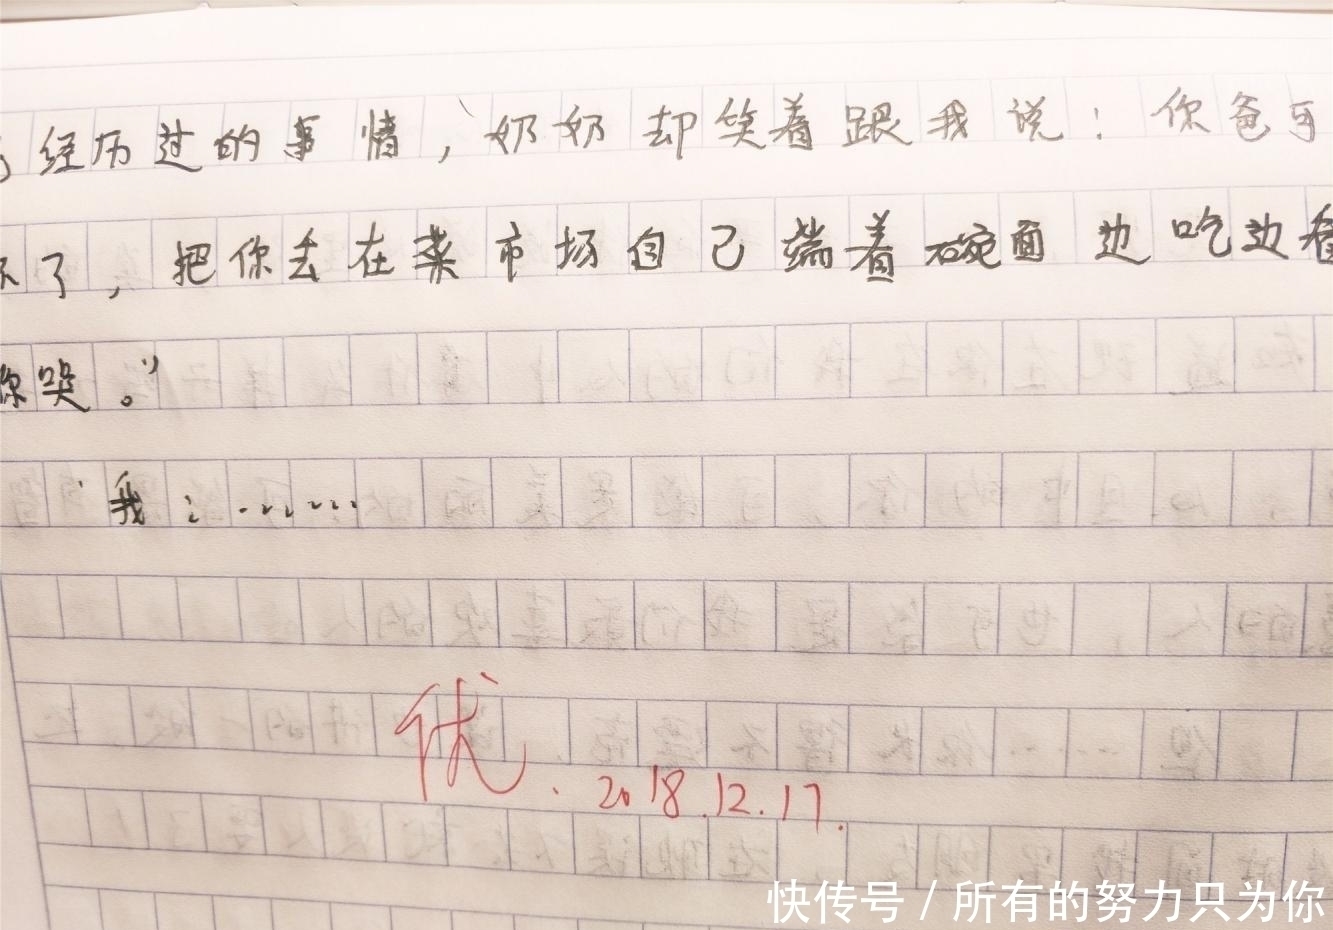 经历过的事情，奶奶却笑着跟我说：你爸可
坏了，把你丢在菜市场自己端着碗面边吃边看
你哭。”
我：……
优.2018.12.17.
快传号/所有的努力只为你